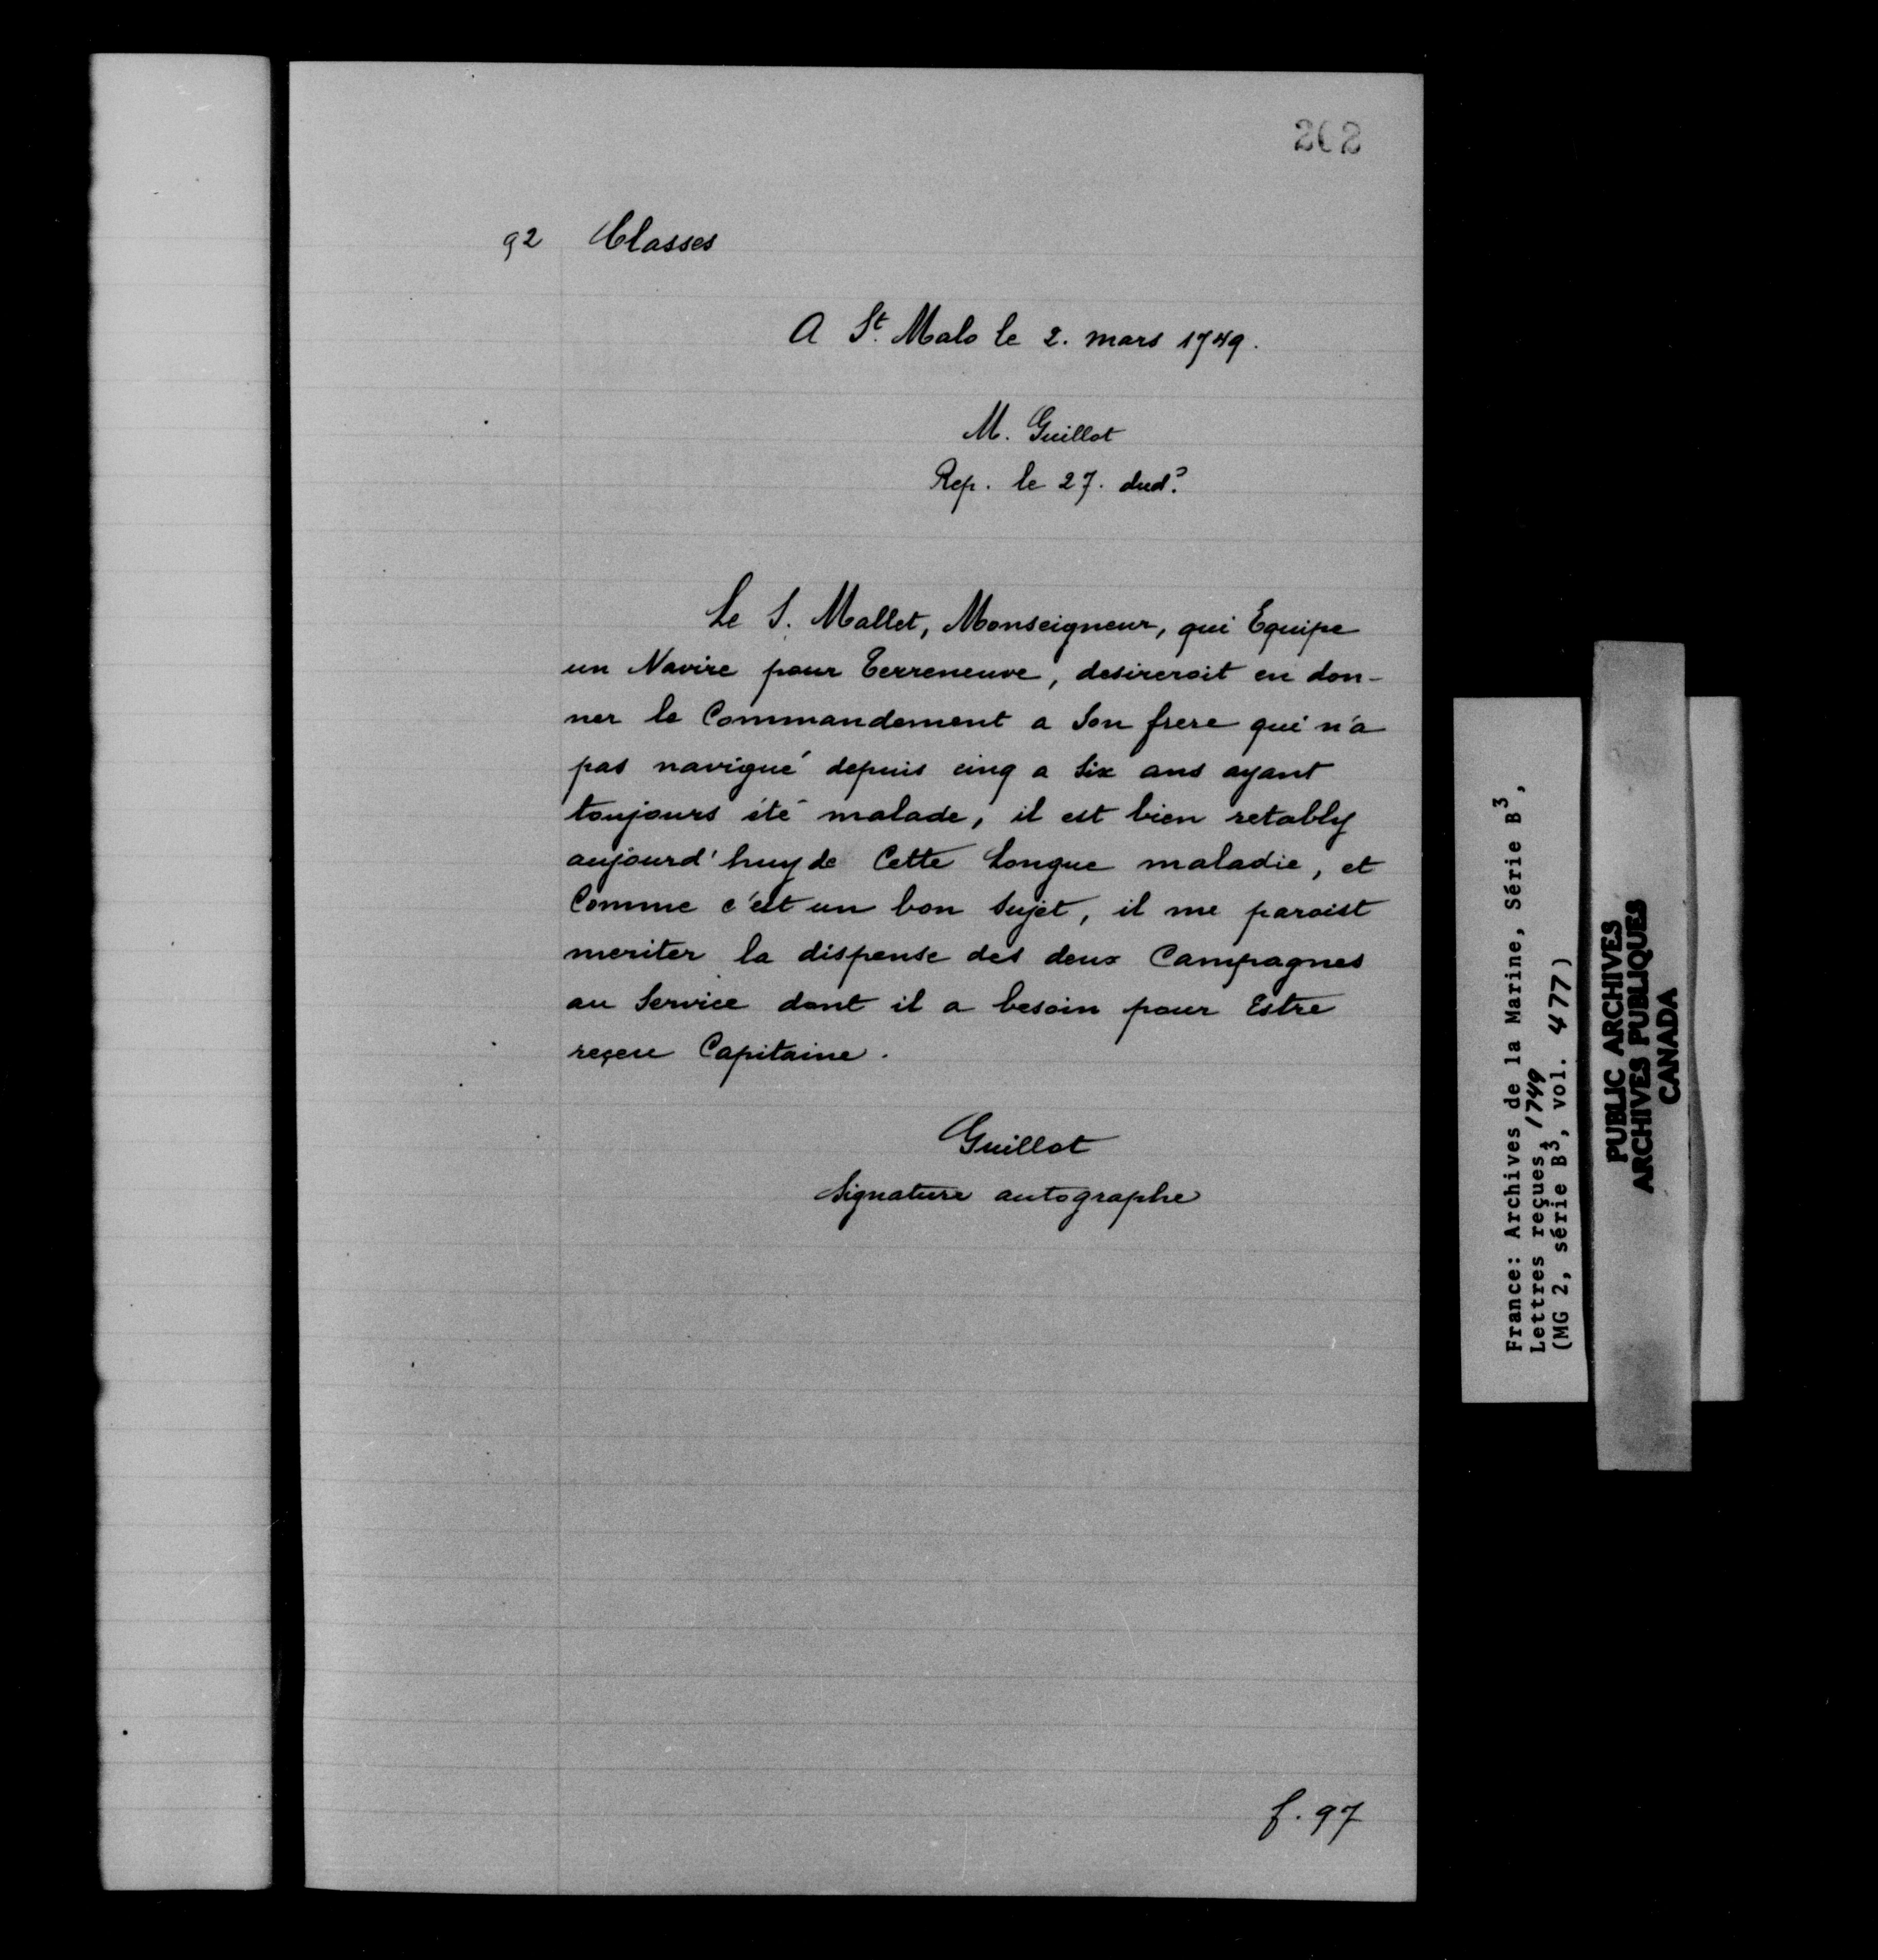 262
92 Classes
A St. Malo le 2. mars 1749.
M. Guillot
Rep. le 27. dud?
Le S. Mallet, Monseigneur, qui Equipe
un Navire pour Terreneuve, desireroit en don-
ner le Commandement a Son frere qui n'a
pas navigué depuis cinq a Six ans ayant
toujours été malade, il est bien retably
aujourd'huy de Cette Longue maladie, et
Comme c'est un bon Sujet, il me paroist
meriter la dispense des deux Campagnes
au Service dont il a besoin pour Estre
reçeu Capitaine.
Guillot
Signature autographe
f. 97
France: Archives de la Marine, Série B3,
Lettres reçues, 1749
(MG 2, série B3, vol. 477)
PUBLIC ARCHIVES
ARCHIVES PUBLIQUES
CANADA